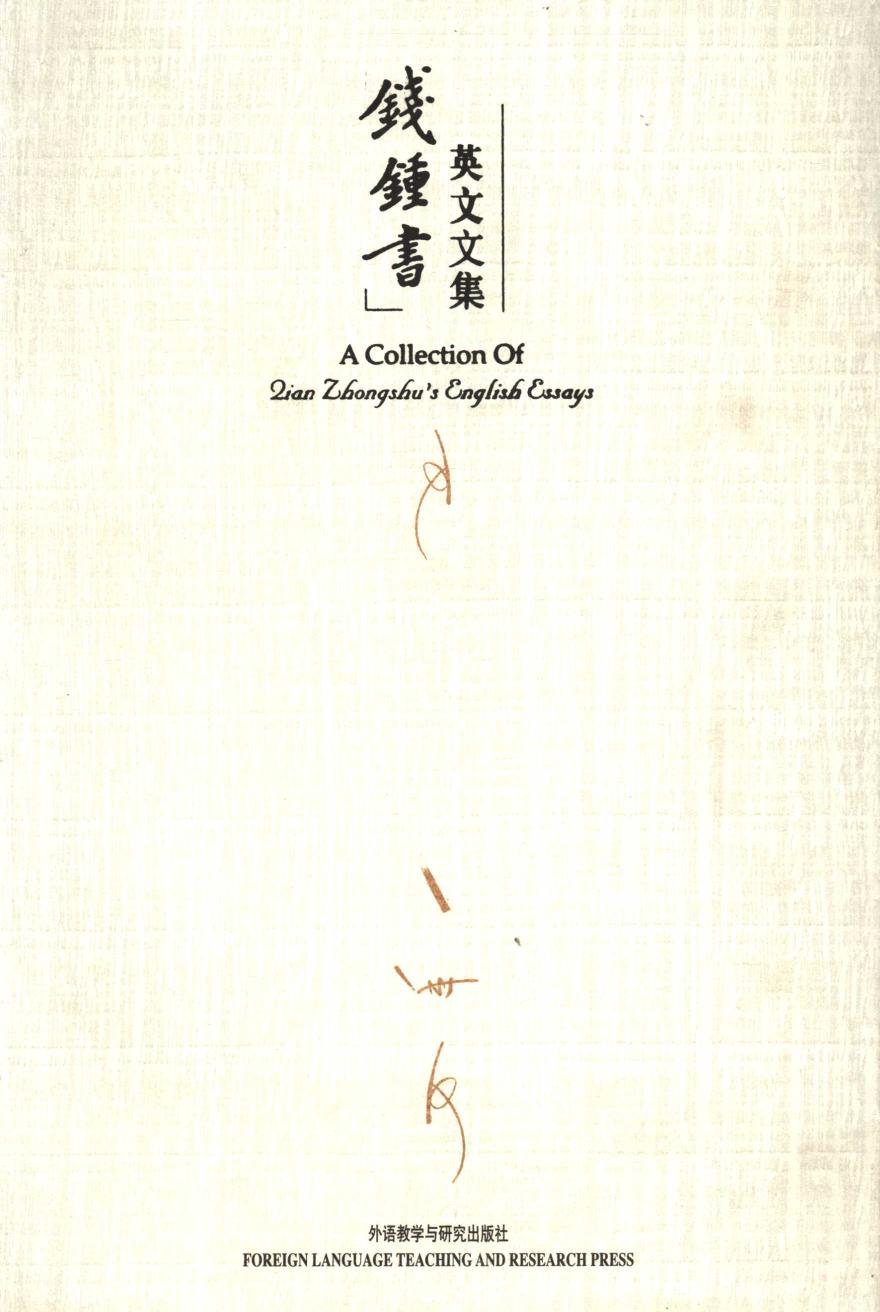 錢鍾書
英文文集
A Collection Of
Qian Zhongshu's English Essays
外语教学与研究出版社
FOREIGN LANGUAGE TEACHING AND RESEARCH PRESS